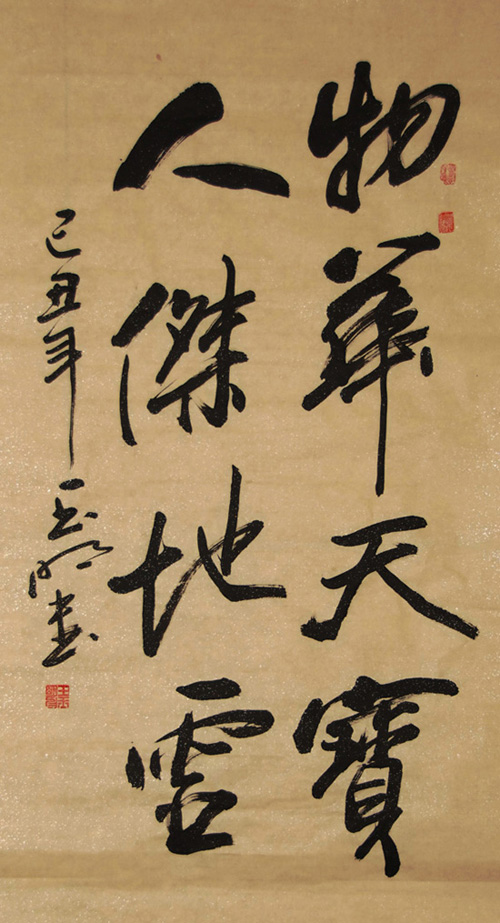 物華天寶
人傑地靈
己丑年玉明書